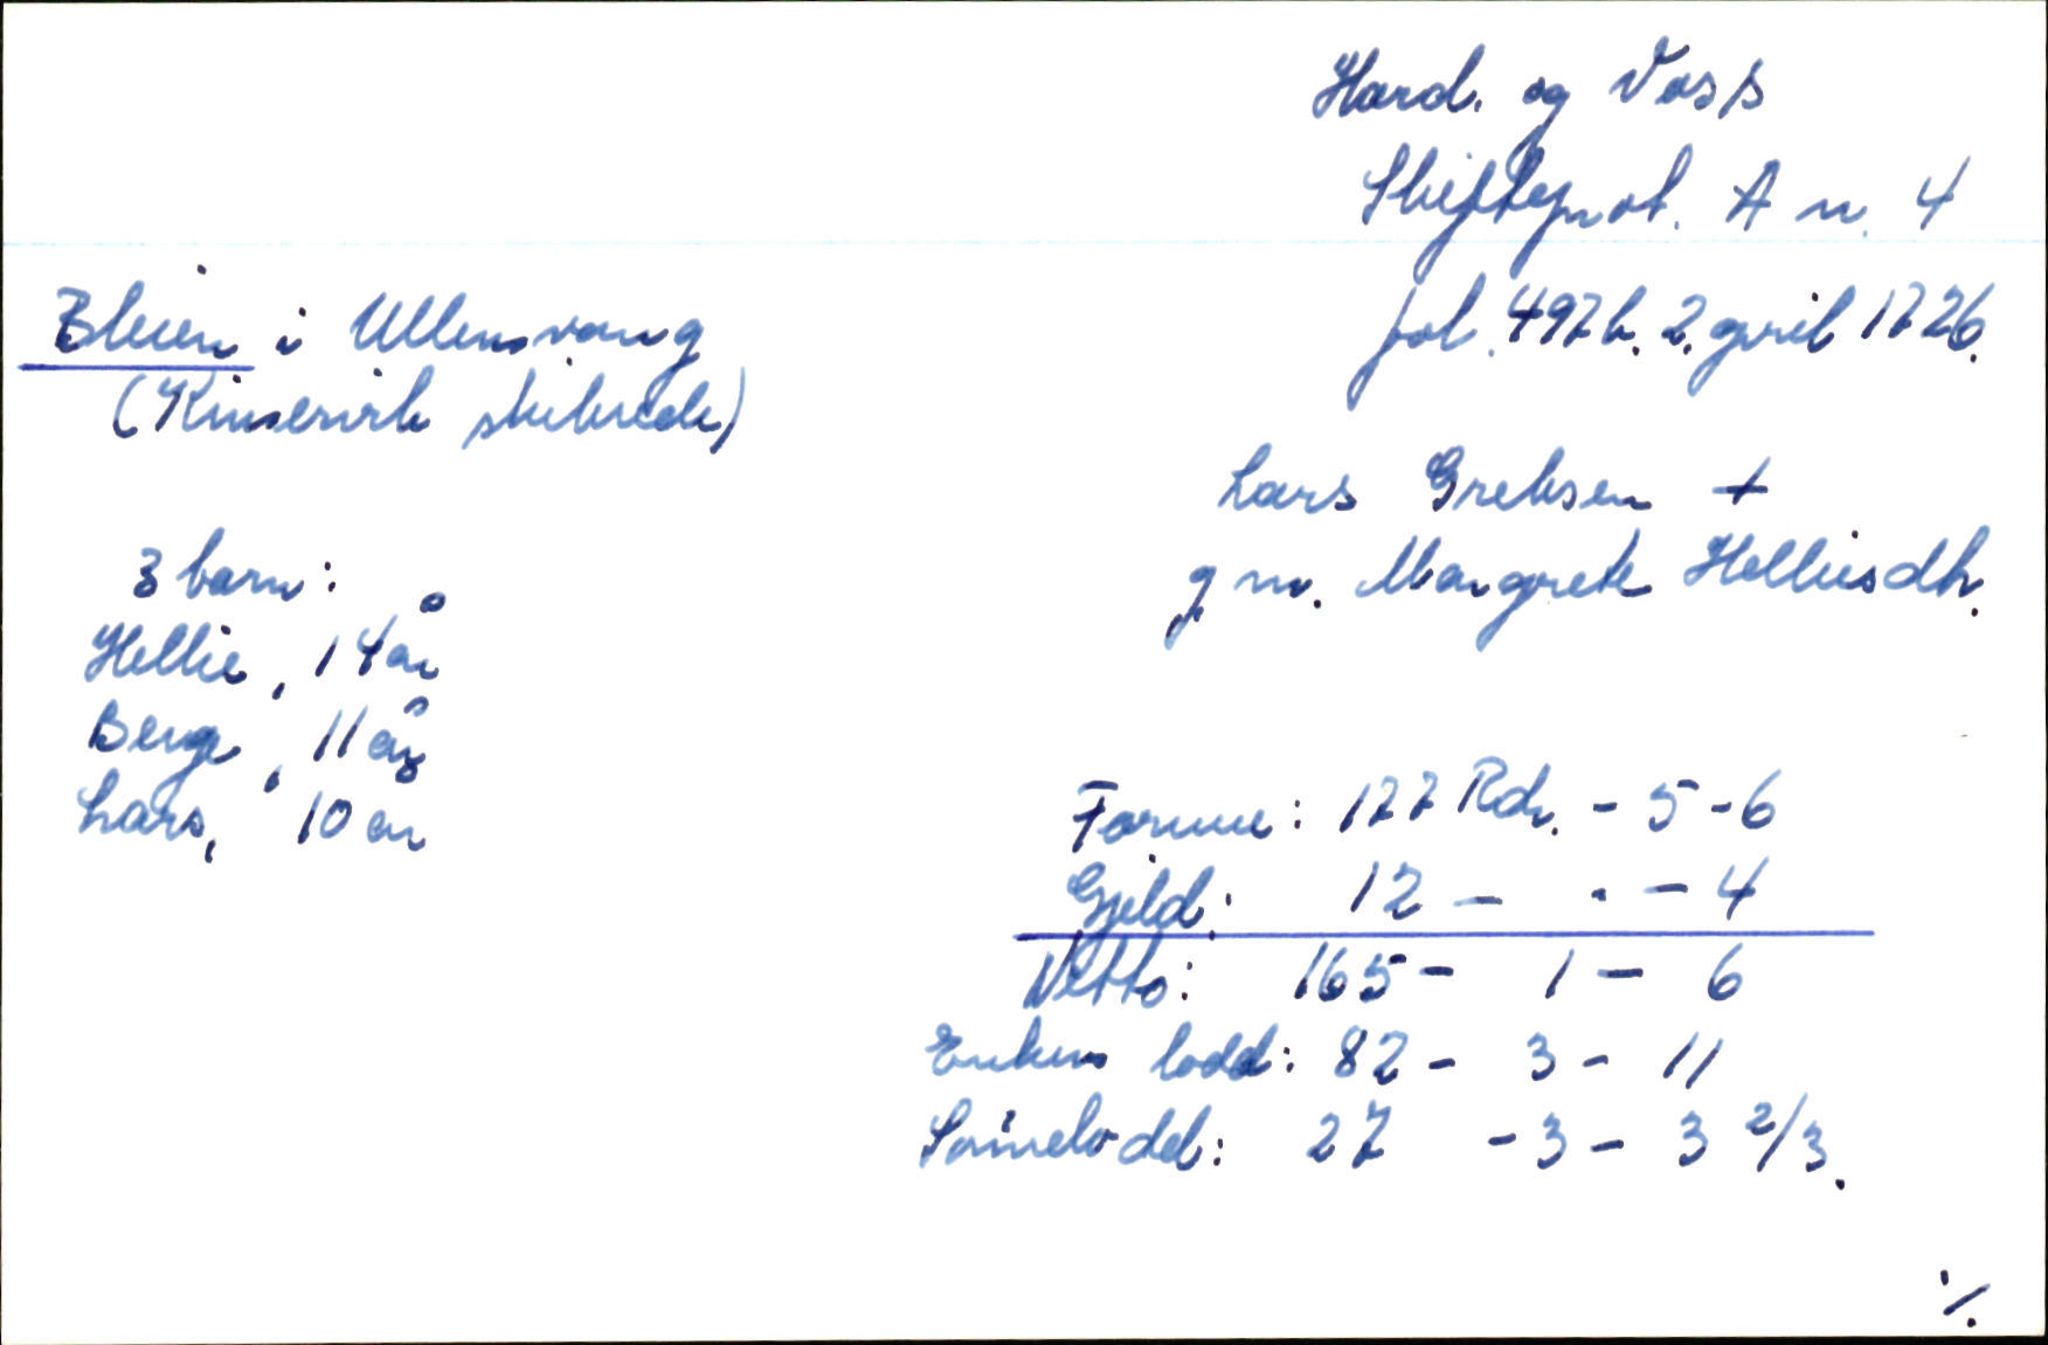 Hard. og Voss
Skifteprot. A nr. 4
fol. 497b. 2. april 1726.
Bleien i Ullensvang
(Kinservik skibrede)
Lars Greksen +
g m. Margrete Helliesdh.
3 barn:
Hellie, 14 år
Berge, 11 år
Lars, 10 år
Formue: 177 Rdr. - 5 - 6
Gjeld: 12 - . - 4
Netto: 165 - 1 - 6
Enkens lodd: 82 - 3 - 11
Sønnelodd: 27 - 3 - 3 2/3.
./.